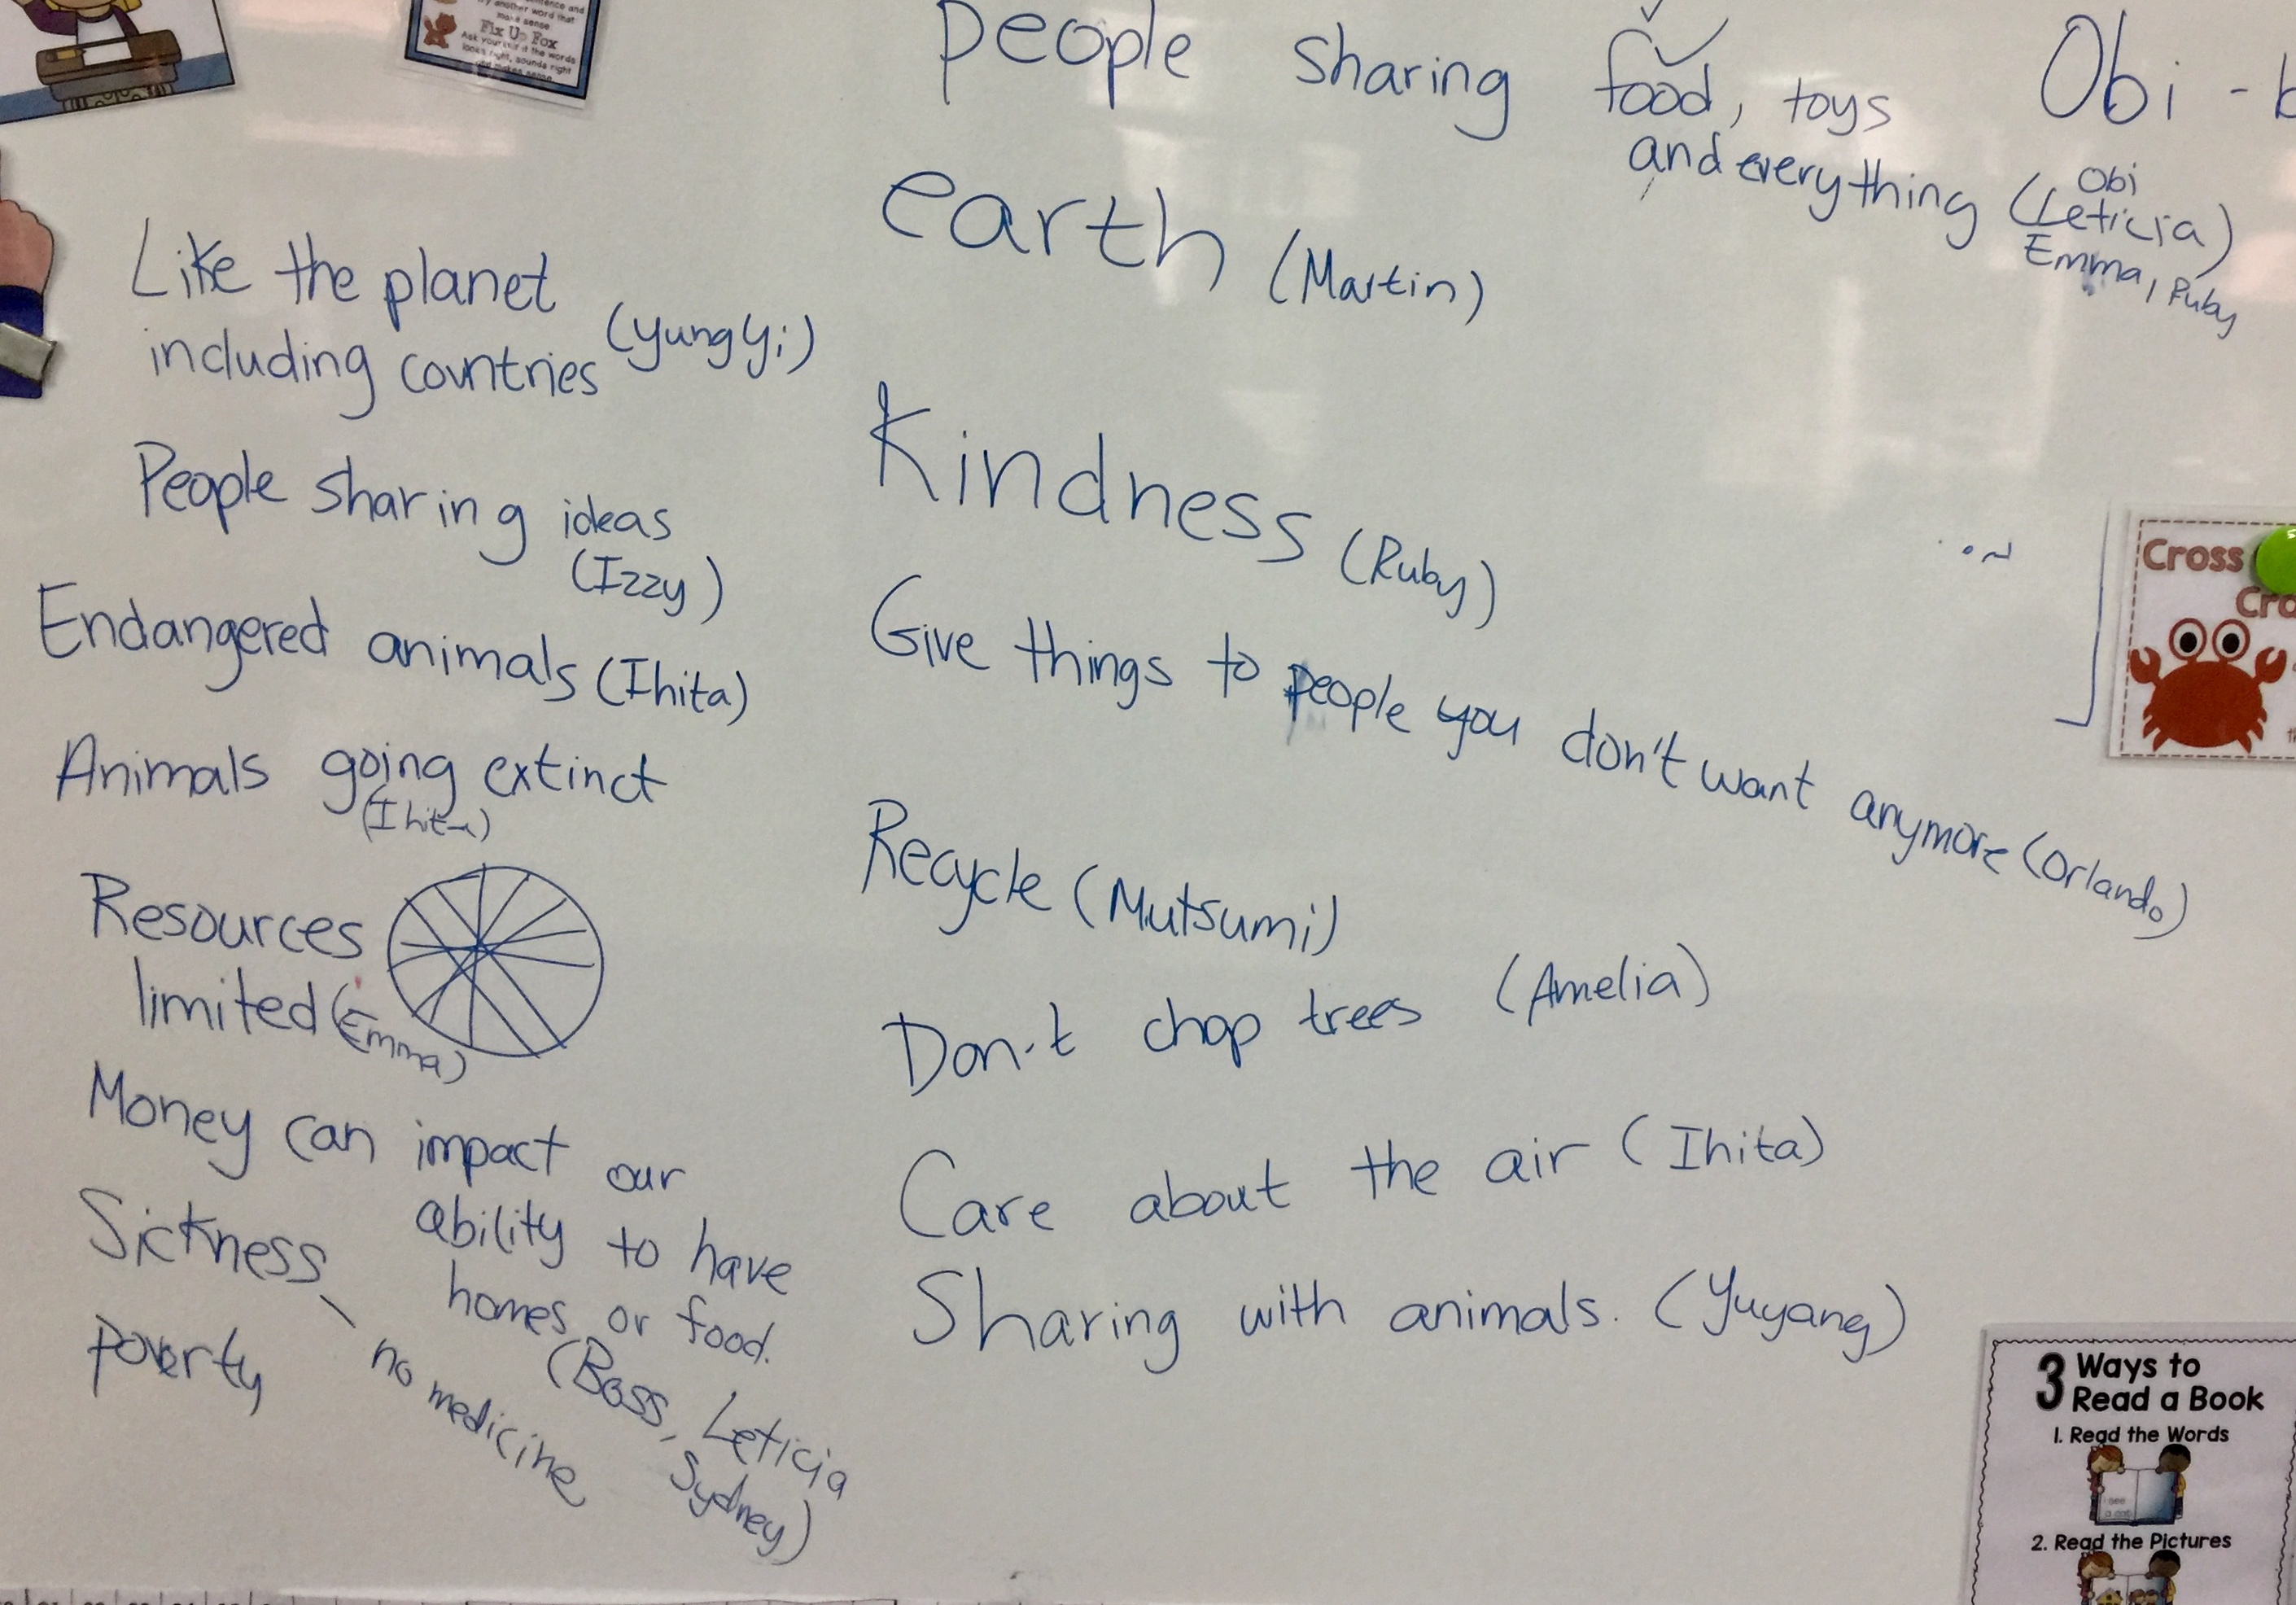 another word that
make sense
Fix Up Fox
Ask yourself if the words
looks right, sounds right
and makes sense
people sharing food, toys
and everything (Obi
Leticia)
Emma, Ruby
Obi -
earth (Martin)
Like the planet
including countries (YungYi)
People sharing ideas
(Izzy)
Endangered animals (Ihita)
Animals going extinct
(Ihita)
Resources
limited (Emma)
Money can impact our
ability to have
homes or food.
(Bass, Leticia
Sydney)
Sickness
no medicine
Poverty
Kindness (Ruby)
Give things to people you don't want anymore (Orlando)
Recycle (Mutsumi)
Don't chop trees (Amelia)
Care about the air (Ihita)
Sharing with animals. (Yuyang)
Cross
3 Ways to
Read a Book
1. Read the Words
I see
a cat
2. Read the Pictures